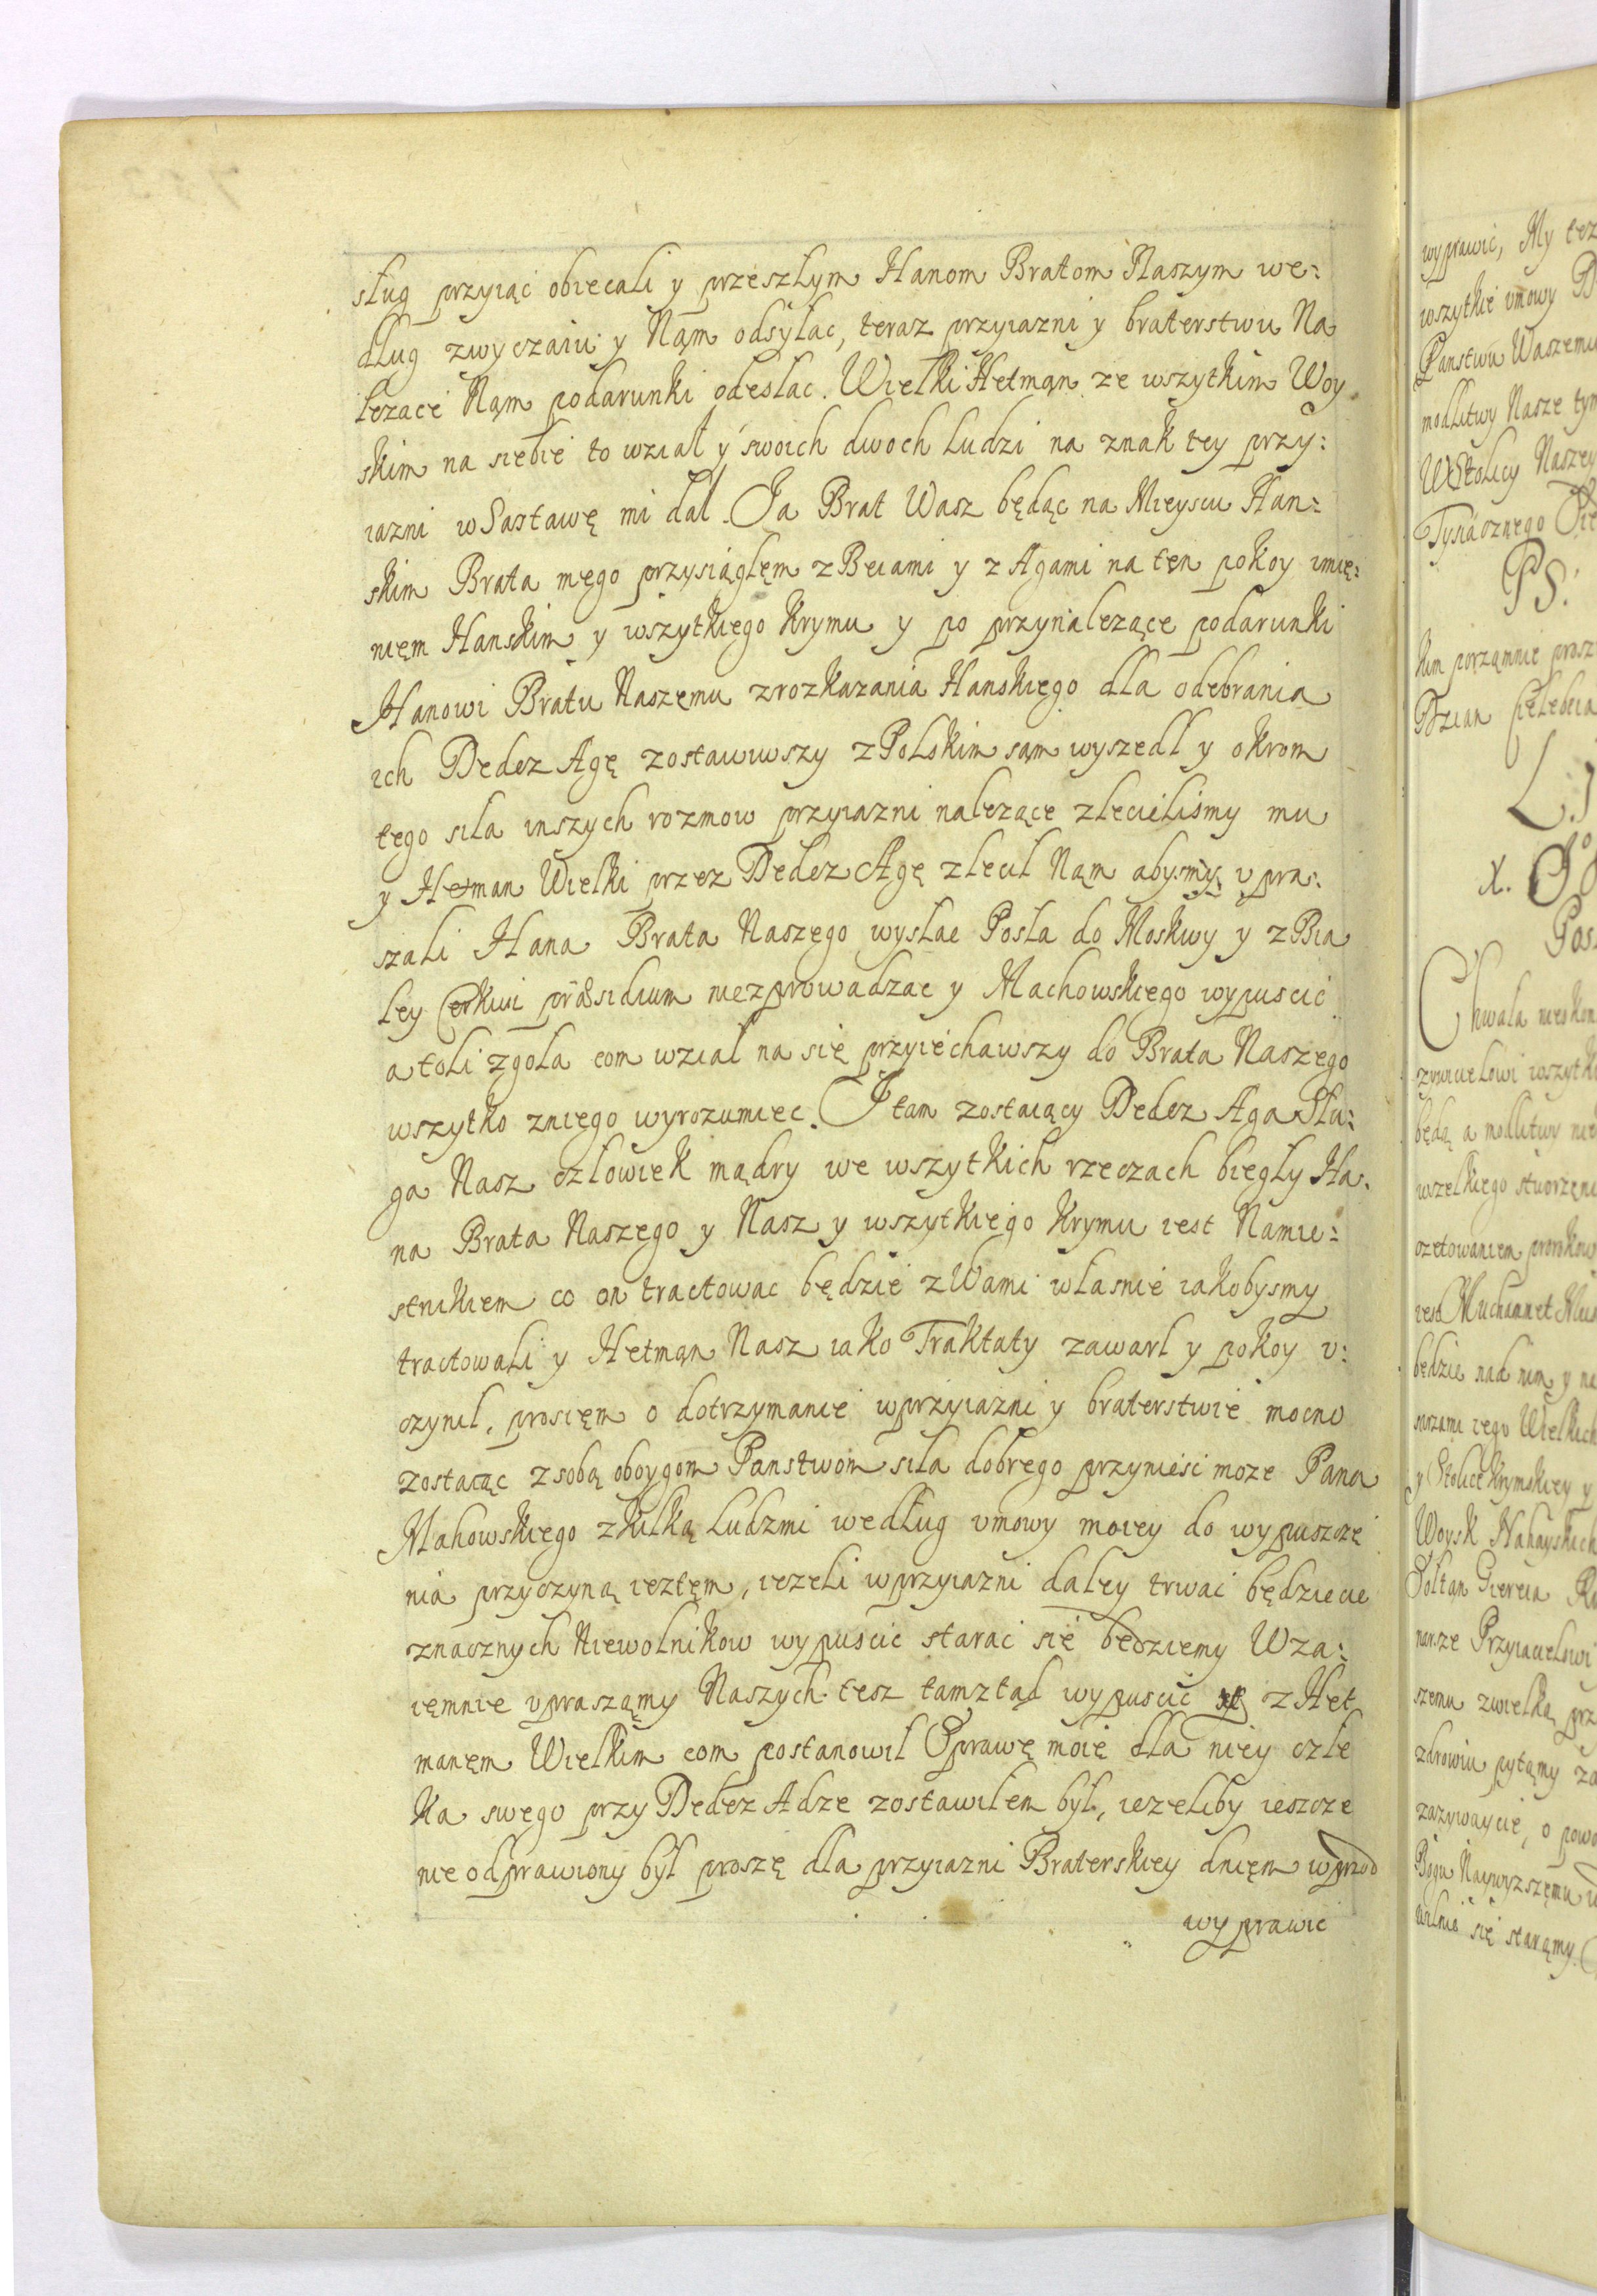 sług przyiąc obiecali y przeszłym Hanom Bratom Naszym we:
dług zwyczaiu y Nąm odsyłac, teraz przyiazni y braterstwu Na
lezace Nąm podarunki odesłac. Wielki Hetmąn ze wszytkim Woy
skim na siebie to wział y swoich dwoch ludzi na znak tey przy:
iazni w Sastawę mi dał. Ja Brat Wasz będąc na Mieyscu Han:
skim Brata mego przysiągłęm z Beiami y z Agami na tęn pokoy imię:
nięm Hanskim y wszytkiego Krymu y po przynalezące podarunki
Hanowi Bratu Naszęmu z rozkazania Hanskiego dla odebrania
ich Dedez Agę zostawiwszy z Polskim sąm wyszedł y okrom
tego siła inszych rozmow przyiazni nalezące zleciliśmy mu
y Hetman Wielki przez Dedez Agę zlecil Nąm abysmy upra:
szali Hana Brata Naszego wysłac Posła do Moskwy y z Bia
łey Cerkwi præsidium niezprowadzac y Machowskiego wypuscic
a toli zgoła com wział na się przyiechawszy do Brata Naszego
wszytko zniego wyrozumiec. I tam zostaiący Dedez Aga Słu:
ga Nasz człowiek mądry we wszytkich rzeczach biegły Ha.
na Brata Naszego y Nasz y wszytkiego Krymu iest Namie:
stnikiem co on tractowac będzie z Wami własnie iakobysmy
tractowali y Hetmąn Nasz iako Traktaty zawarł y pokoy u:
czynił, prosięm o dotrzymanie w przyiazni y braterstwie mocno
zostaiąc z sobą oboygom Panstwom siła dobrego przyniesc moze Pana
Mahowskiego z kilką ludzmi według umowy moiey do wypuszcze
nia przyczyną ieztęm, iezeli w przyiazni daley trwac będziecie
znacznych Niewolnikow wypuscic starac się będziemy Wza:
ięmnie upraszamy Naszych tesz tamztąd wypuscic z Het
manęm Wielkim com postanowił Sprawę moię dla niey człe
ka swego przy Dedez Adze zostawiłem był, iezeliby ieszcze
nie odprawiony był proszę dla przyiazni Braterskiey dnięm wprzod
wyprawic
wyprawic, My tez
wszytkie umowy
Panstwu Waszemu
modlitwy Nasze tym
W Stolicy Naszey
Tysiącznego
PS:
kim porząmnie prosz
Dzian Celebia
X.
Chwała nieskon
zywicielowi wszytki
będą a modlitwy
wszelkiego stworzęni
czetowaniem prorokow
iest Muchammet
będzie nad nim y na
iego Wielkich
y Stolice Krymskiey y
Woysk Nahayskich
Sołtan Giereia
Przyiacielowi
szemu z wielką prz
zdrowiu pytąmy za
zazywaycie, o powo
Bogu Naywyzszęmu
się starąmy.